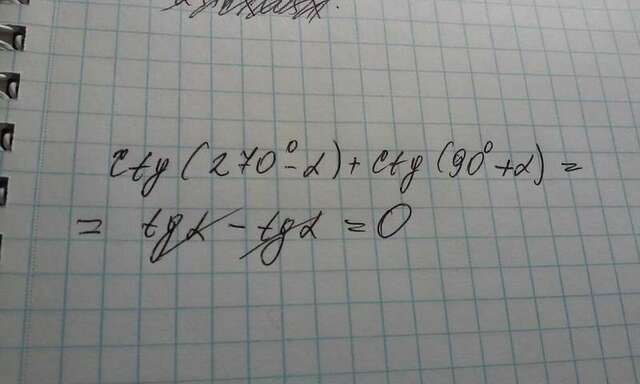 ctg (270° - α) + ctg (90° + α) =
= tgα - tgα = 0